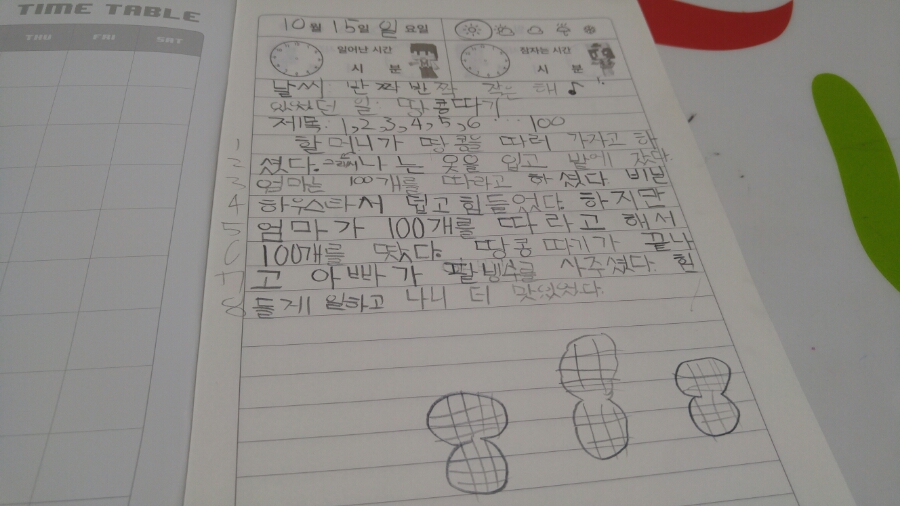 TIME TABLE
THU FRI SAT
10월 15일 일요일
일어난 시간 잠자는 시간
시 분 시 분
날씨: 반짝반짝 작은 해♪
있었던 일: 땅콩따기
제목: 1,2,3,4,5,6 ··· 100
1 할머니가 땅콩을 따러 가자고 하
2 셨다. 그래서 나는 옷을 입고 밭에 갔다.
3 엄마는 100개를 따라고 하셨다. 비닐
4 하우스라서 덥고 힘들었다. 하지만
5 엄마가 100개를 따라고 해서
6 100개를 땄다. 땅콩 따기가 끝나
7 고 아빠가 팥빙수를 사주셨다. 힘
8 들게 일하고 나니 더 맛있었다.